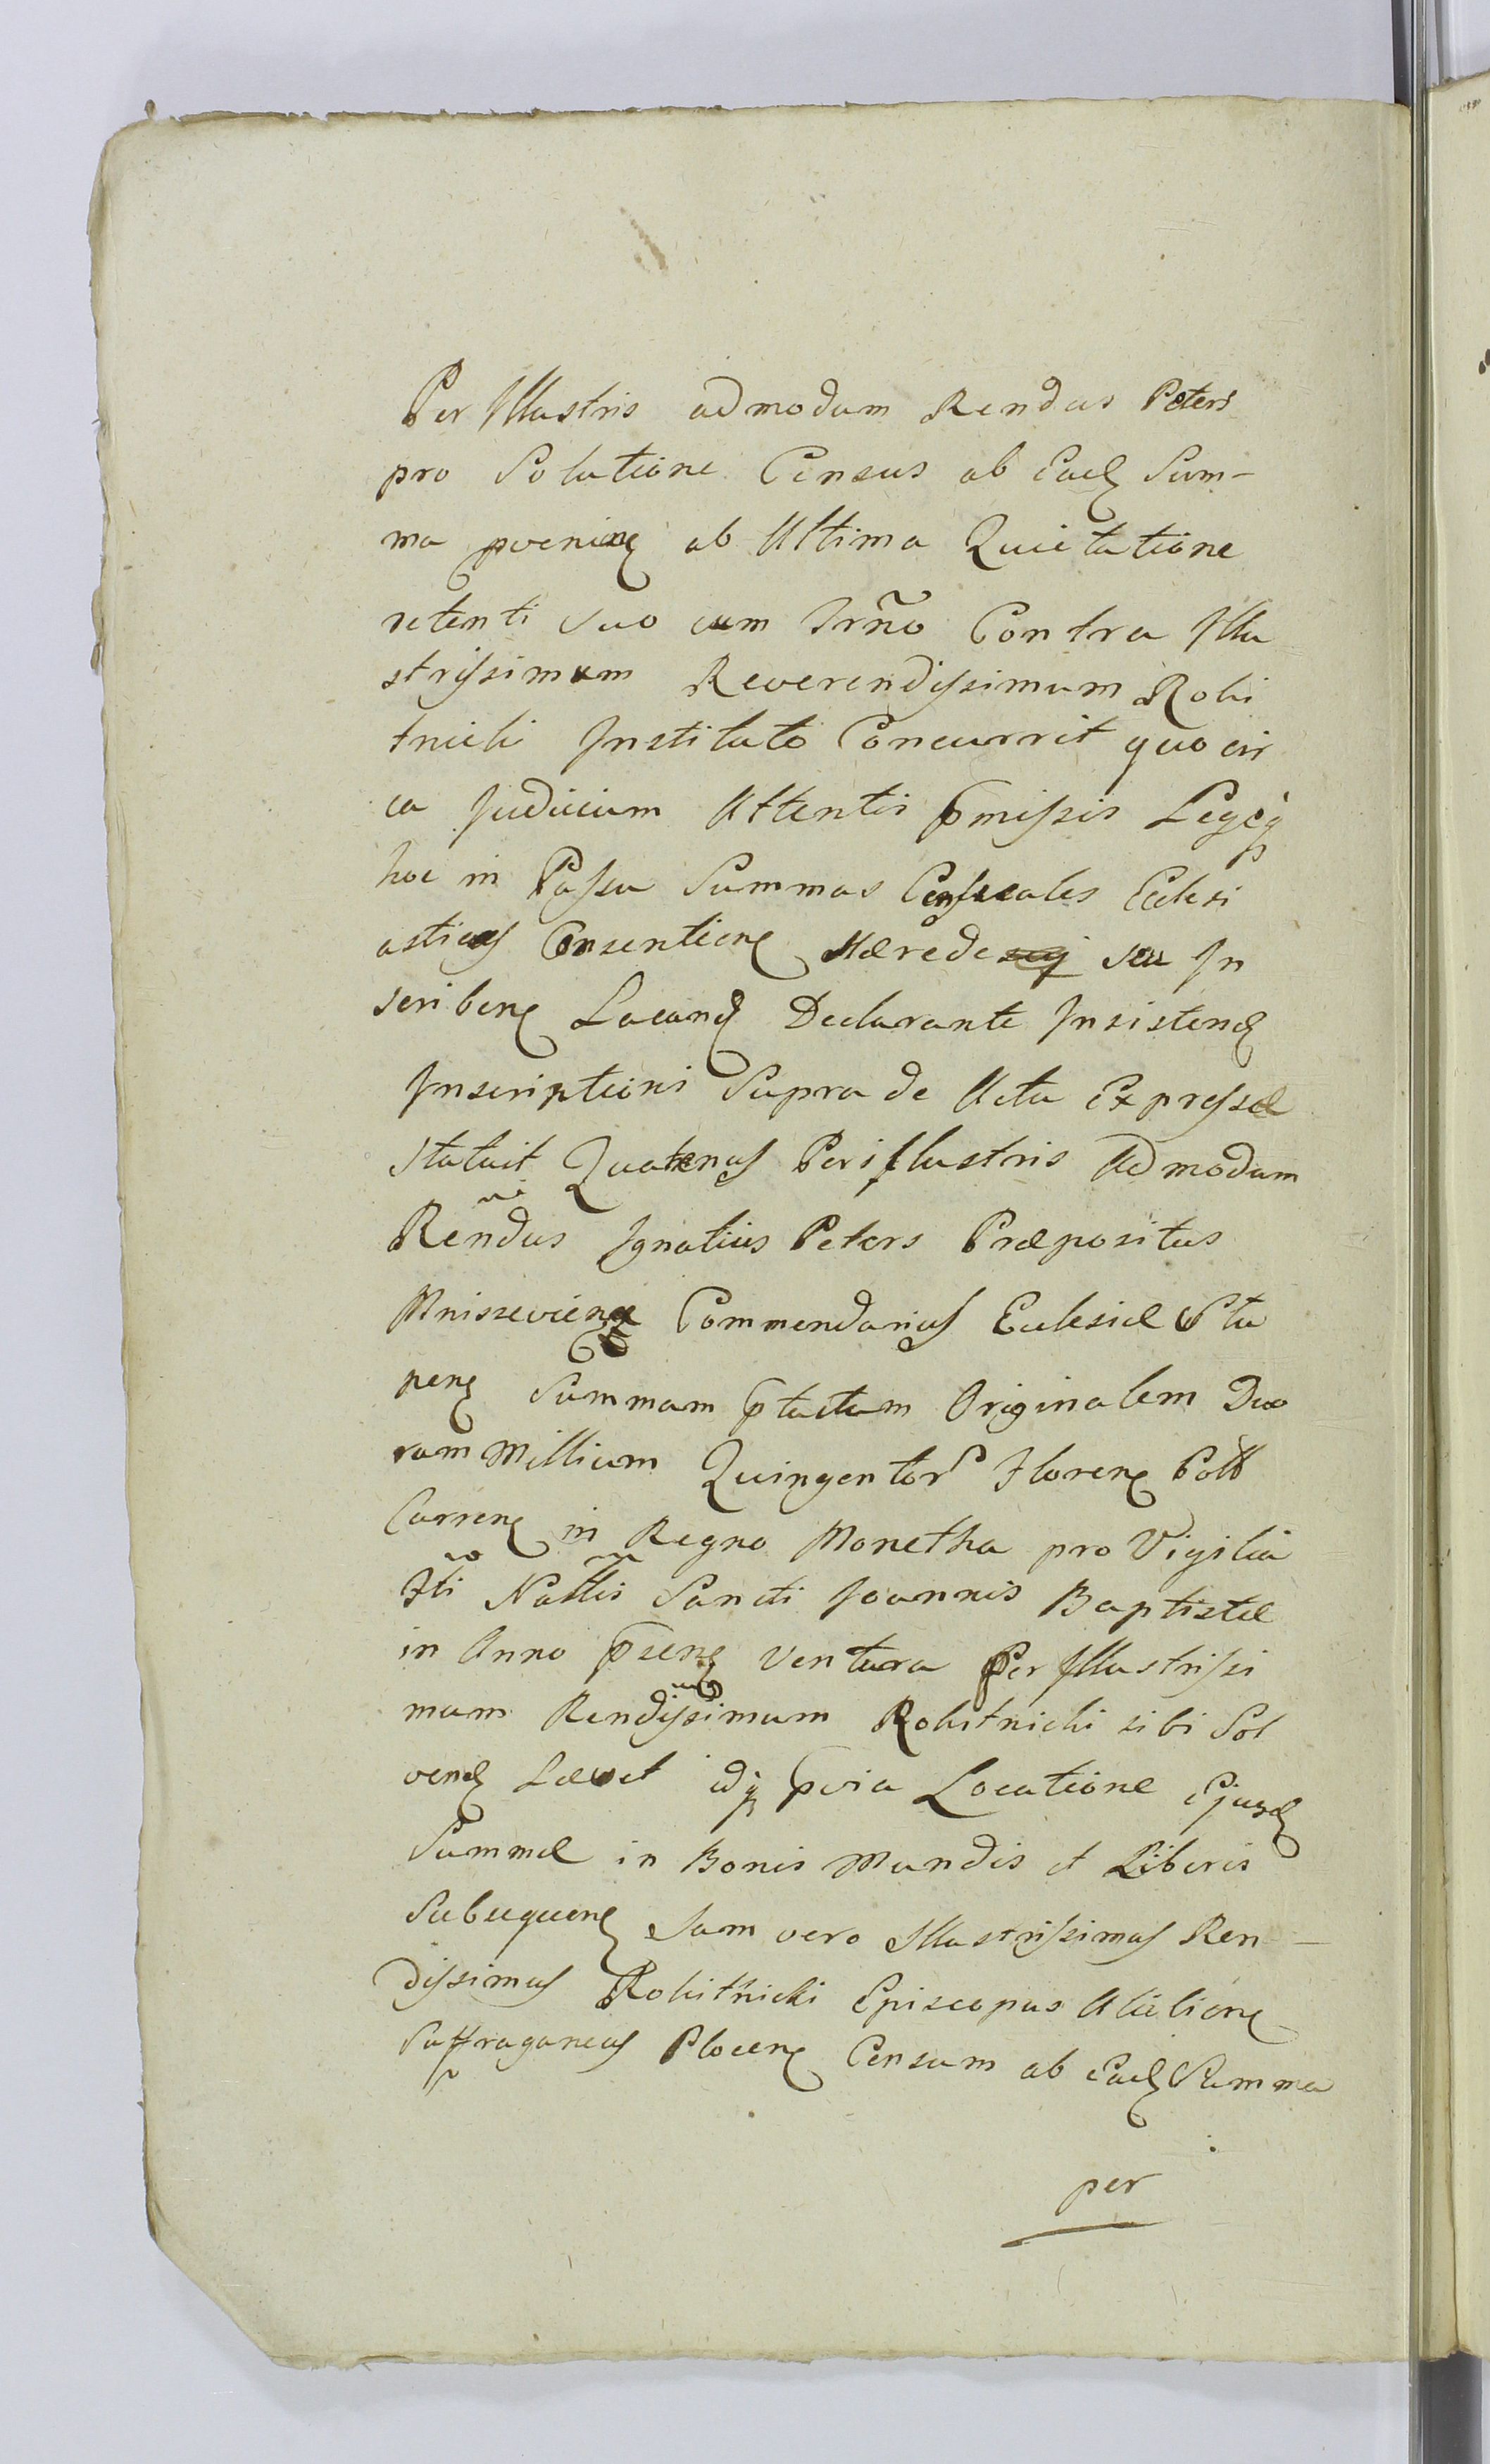 Per Illustris admodum Rendus Peters
pro Solutione Census ab Ead Sum-
ma pvenien ab Ultima Quietatione
retenti suo cum Irño Contra Illu
strissimum Reverendissimum Roki
tnicki Instituto Concurrit quo cir
ca Judicium Attentis pmissis Legeq
hoc in Passu Summas Censuales Eclesi
asticas Consentien Hærede seu In
scriben Locand Declarante Insistend
Inscriptioni Supra de Actu Expressæ
Statuit Quatenus Perillustris Admodum
Rendus Ignatius Peters Præpositus
Mniszevien Commendarius Eclesiæ Stu
pen Summam ptactam Originalem Duo
rum Millium Quingentor Floren Poll
Curren in Regno Monetha pro Vigilia
Fti Nattis Sancti Joannis Baptistæ
in Anno psen Ventura Per Illustrissi
mum Rendissimum Rokitnicki sibi Sol
vend Levet idq pvia Locatione Ejusd
Summæ in Bonis Mundis et Liberis
Subsequen Jam vero Illustrissimus Ren-
dissimus Rokitnicki Episcopus
Suffraganeus Plocen Censum ab Ead Summa
per